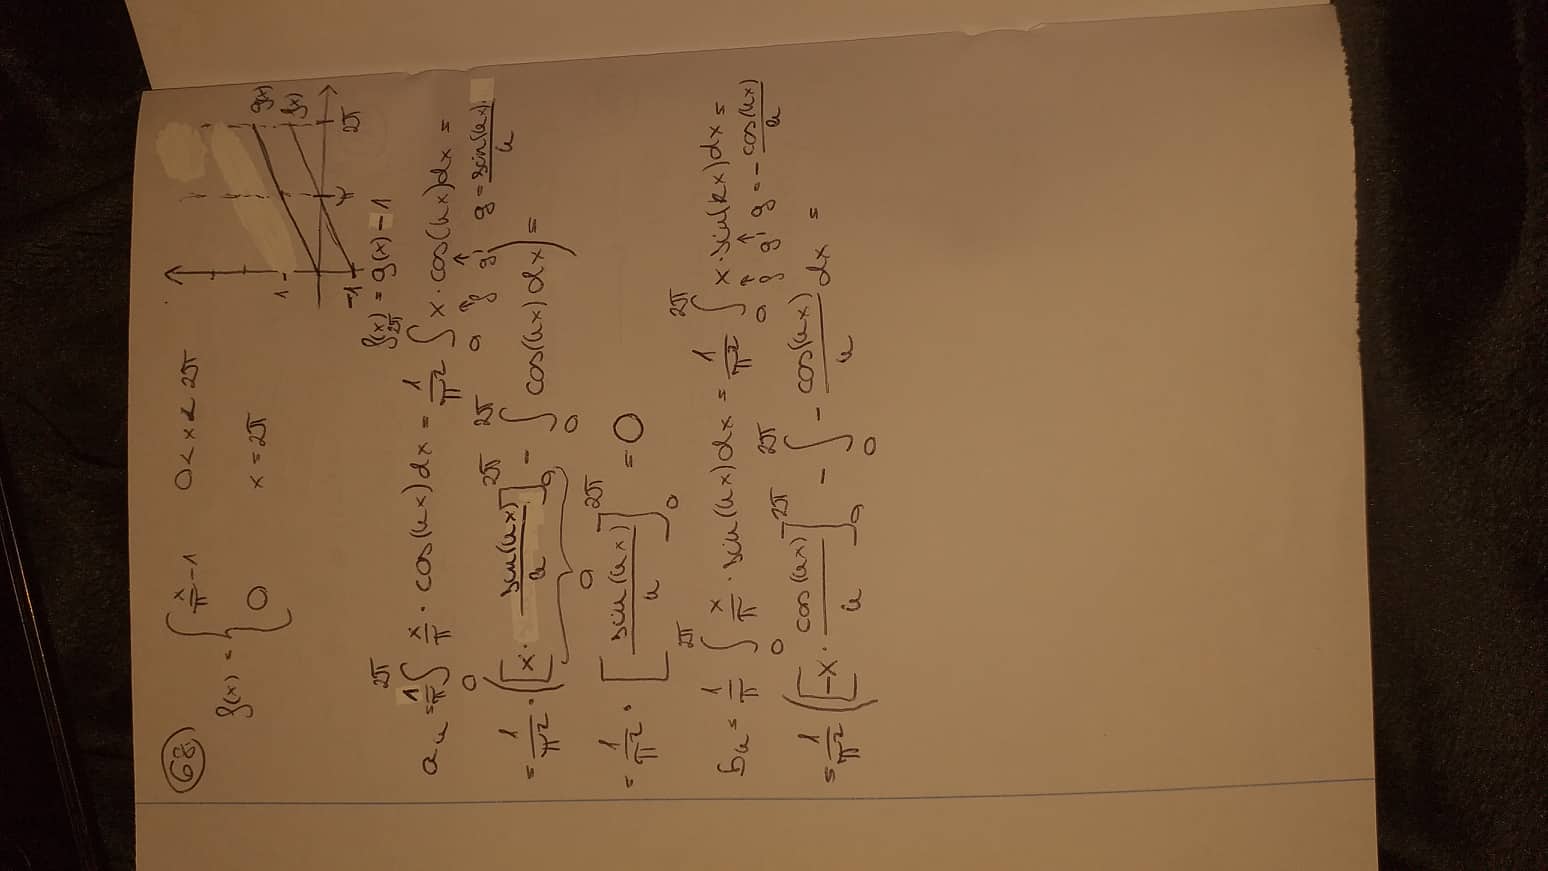 68)
f(x) = { x/π - 1   0 < x < 2π
0   x = 2π
1
-1
π
2π
g(x)
f(x)
f(x) = g(x) - 1
a_k = 1/π ∫_0^{2π} x/π · cos(kx) dx = 1/π² ∫_0^{2π} x · cos(kx) dx =
↑ ↑
g' g = sin(kx)/k
= 1/π² · ([x · sin(kx)/k]_0^{2π} - ∫_0^{2π} cos(kx) dx) =
0
= 1/π² · [sin(kx)/k]_0^{2π} = 0
b_k = 1/π ∫_0^{2π} x/π · sin(kx) dx = 1/π² ∫_0^{2π} x · sin(kx) dx =
↑ ↑
g' g = - cos(kx)/k
= 1/π² ([-x · cos(kx)/k]_0^{2π} - ∫_0^{2π} - cos(kx)/k dx =